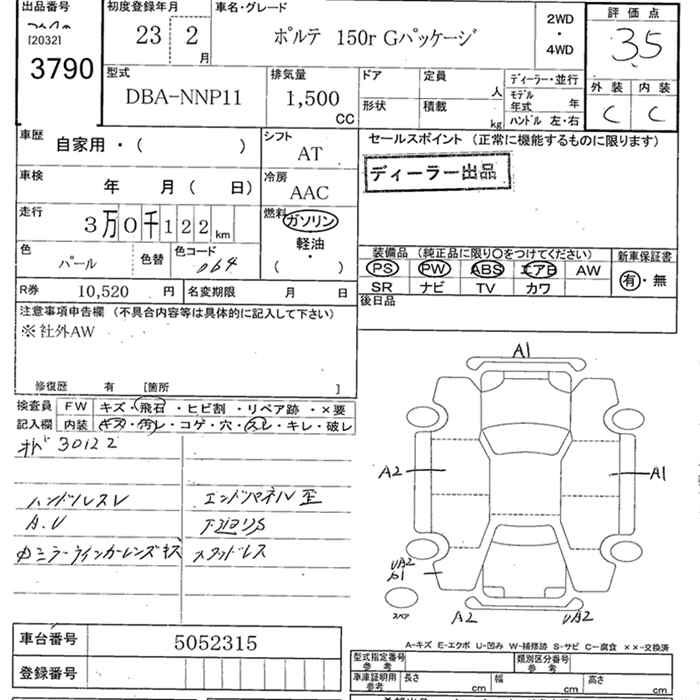 出品番号 初度登録年月 車名・グレード 評価点
[2032]
3790
23 2月 ポルテ 150r Gパッケージ 2WD ・ 4WD 3.5
型式 排気量 ドア 定員 人 ディーラー・並行 外装 内装
DBA-NNP11 1,500 CC 形状 積載 kg モデル年式 年 ハンドル 左・右 C C
車歴 自家用・( ) シフト AT セールスポイント (正常に機能するものに限ります)
ディーラー出品
車検 年 月 ( 日) 冷房 AAC
走行 3万0千122km 燃料 ガソリン
軽油・
( )
色 パール 色替 色コード 064
装備品 (純正品に限り○をつけてください) 新車保証書
PS PW ABS エアB AW 有・無
SR ナビ TV カワ
R券 10,520 円 名変期限 月 日 後日品
注意事項申告欄 (不具合内容等は具体的に記入して下さい)
※社外AW
修復歴 有 [箇所 ]
検査員 FW キズ・飛石・ヒビ割・リペア跡・×要
記入欄 内装 キズ・汚レ・コゲ・穴・スレ・キレ・破レ
30122
ハンドルスレ エンドパネル歪
A.U 下廻りS
ミラーウインカーレンズキズ スタッドレス
A1
A2 A1
UA2
A1
スペア A2 UA2
A-キズ E-エクボ U-凹み W-補修跡 S-サビ C-腐食 ××-交換済
車台番号 5052315
登録番号
型式指定番号 参考 類別区分番号 参考
車庫証明用 参考 長さ cm 幅 cm 高さ cm